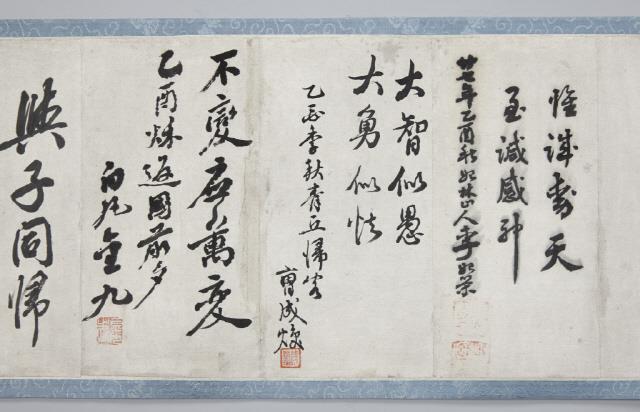 惟德動天
至諴感神
廿七年乙酉秋始林山人李始榮
大智似愚
大勇似怯
乙酉季秋青丘歸客
曺成煥
不變應萬變
乙酉秋返國前夕
白凡金九
與子同歸